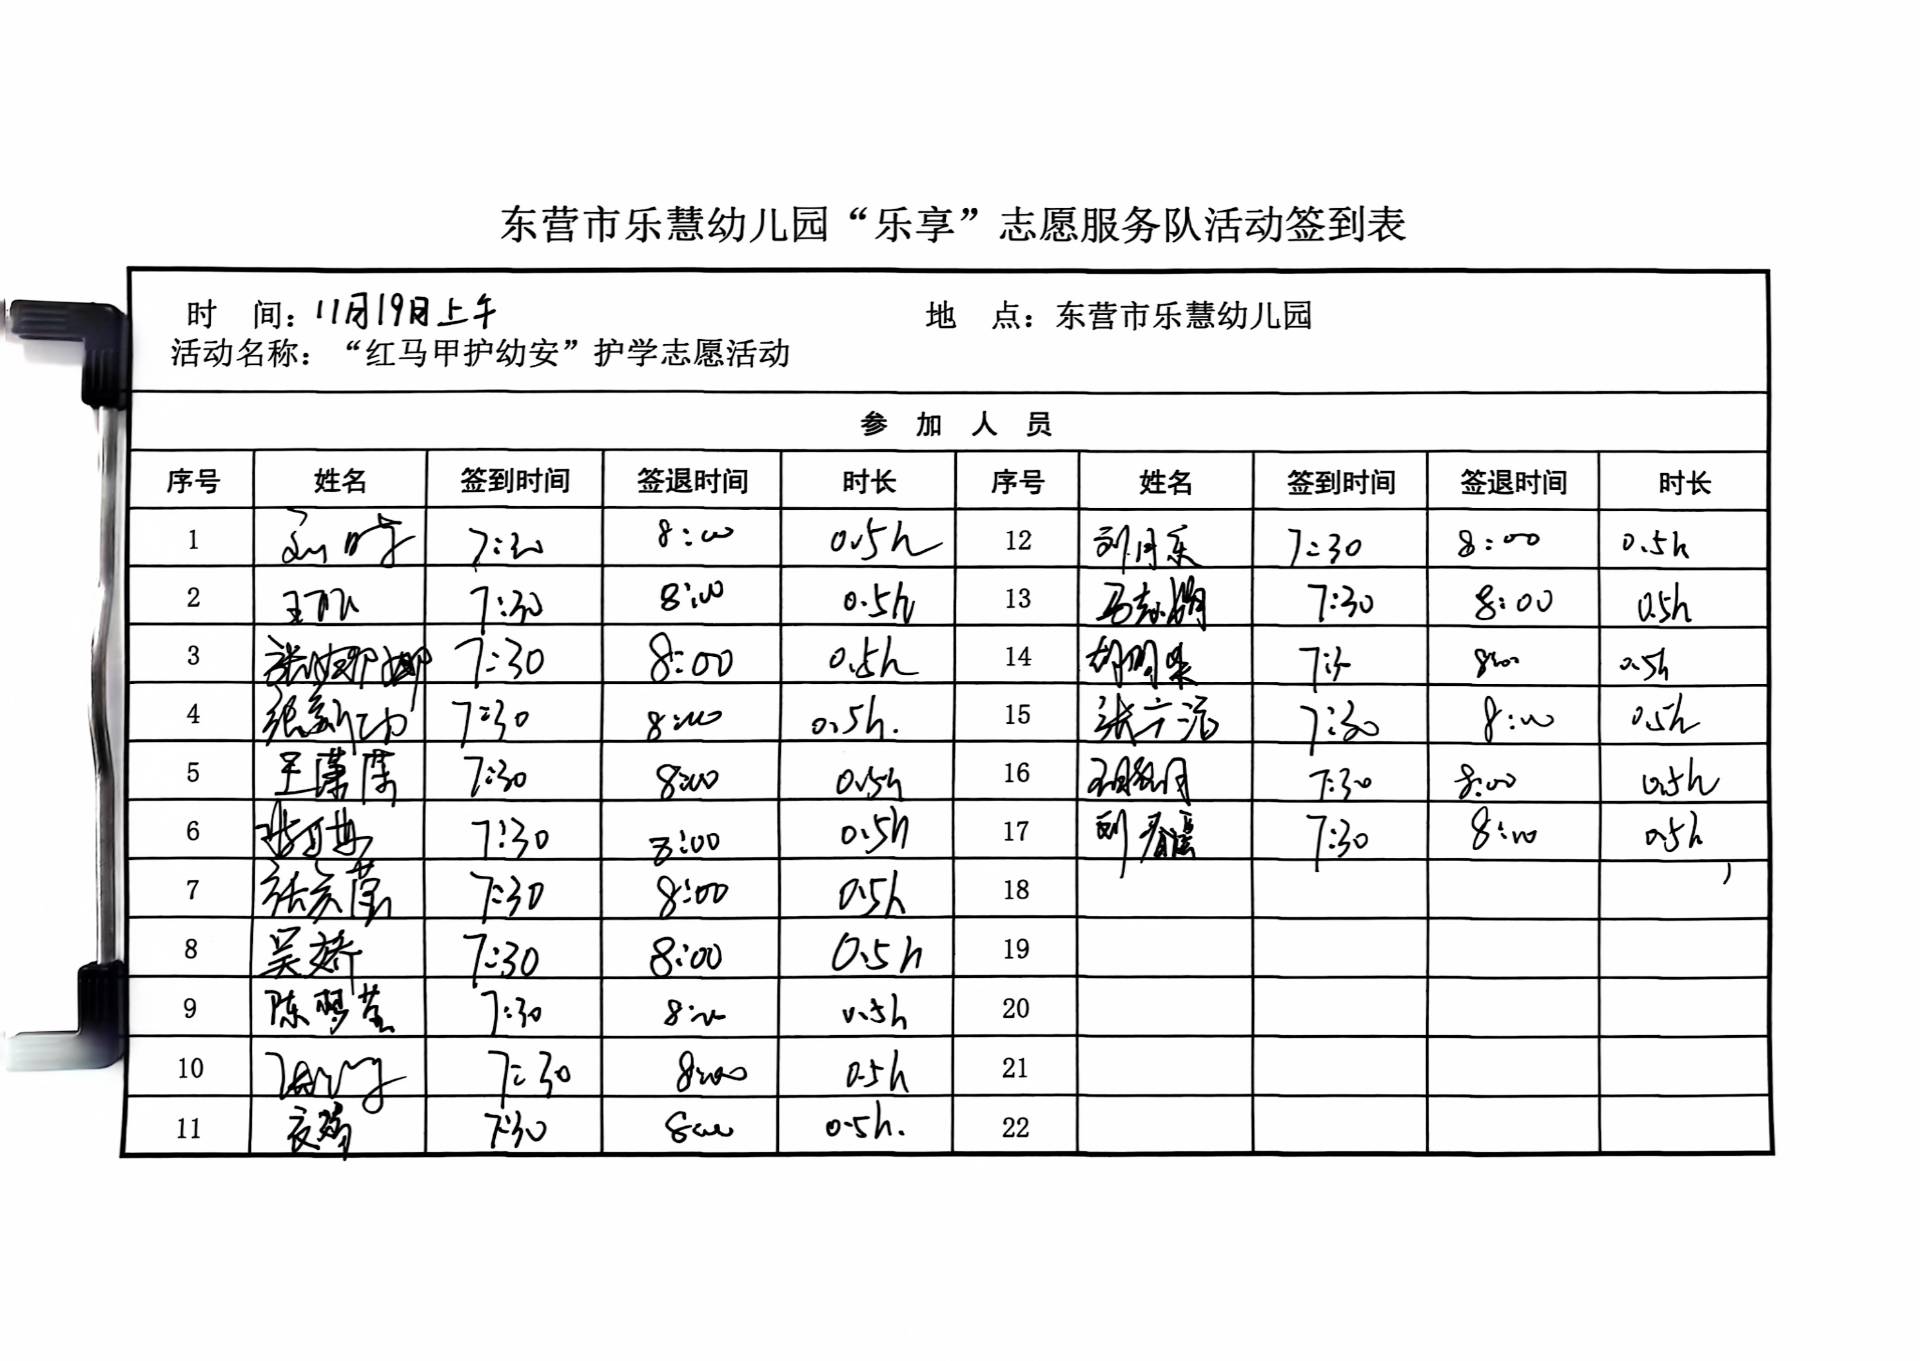 东营市乐慧幼儿园“乐享”志愿服务队活动签到表
时 间：11月19日上午 地 点：东营市乐慧幼儿园
活动名称：“红马甲护幼安”护学志愿活动
参 加 人 员
序号 姓名 签到时间 签退时间 时长 序号 姓名 签到时间 签退时间 时长
1 7:30 8:00 0.5h 12 刘月乐 7:30 8:00 0.5h
2 7:30 8:00 0.5h 13 7:30 8:00 0.5h
3 7:30 8:00 0.5h 14 7:30 8:00 0.5h
4 7:30 8:00 0.5h. 15 7:30 8:00 0.5h
5 王潇潇 7:30 8:00 0.5h 16 7:30 8:00 0.5h
6 7:30 8:00 0.5h 17 7:30 8:00 0.5h
7 7:30 8:00 0.5h 18
8 吴娇 7:30 8:00 0.5h 19
9 陈梦莹 7:30 8:00 0.5h 20
10 7:30 8:00 0.5h 21
11 7:30 8:00 0.5h. 22